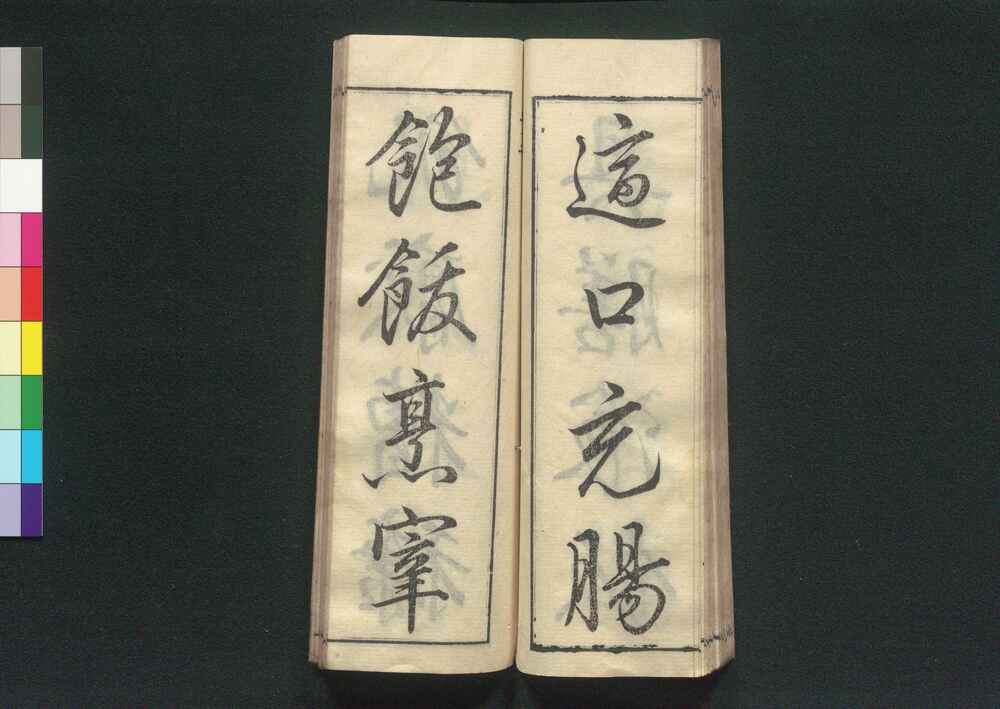 適口充腸
飽飫烹宰